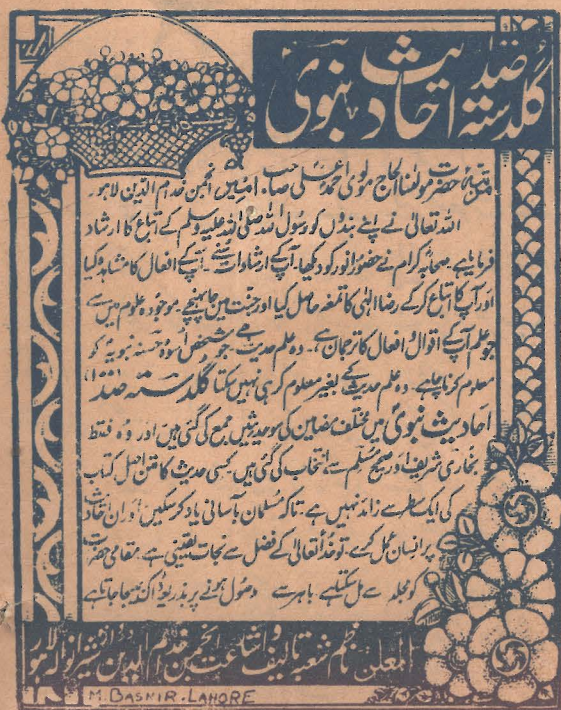 گلدستہ صد احادیث نبوی
مرتبہ حضرت مولٰنا الحاج مولوی احمد علی صاحب امیر انجمن خدام الدین لاہور۔
اللہ تعالیٰ نے اپنے بندوں کو رسول اللہ صلی اللہ علیہ وسلم کے اتباع کا ارشاد
فرمایا ہے۔ صحابہ کرام نے حضور انور کو دیکھا۔ آپ کے ارشادات سُنے۔ آپ کے افعال کا مشاہدہ کیا
اور آپ کا اتباع کر کے رضا الٰہی کا تمغہ حاصل کیا اور جنت میں جا پہنچے۔ موجودہ علوم میں سے
جو علم آپ کے اقوال و افعال کا ترجمان ہے۔ وہ علم حدیث ہے۔ جو شخص اسوہ حسنہ نبویہ کو
معلوم کرنا چاہے۔ وہ علم حدیث کے بغیر معلوم کر ہی نہیں سکتا گلدستہ صد
احادیث نبوی میں مختلف مضامین کی سو حدیثیں جمع کی گئی ہیں اور وہ فقط
بخاری شریف اور صحیح مسلم سے انتخاب کی گئی ہیں۔ کسی حدیث کا متن اصل کتاب
کی ایک سطر سے زائد نہیں ہے۔ تاکہ مسلمان بآسانی یاد کر سکیں اور ان احادیث
پر انسان عمل کرے۔ تو خدا تعالیٰ کے فضل سے نجات یقینی ہے۔ مقامی حضرات
کو مجلد سے مل سکتا ہے۔ باہر سے وصول ہونے پر بذریعہ ڈاک بھیجا جاتا ہے
المعلن ناظم شعبہ تالیف و اشاعت انجمن خدام الدین دروازہ شیرانوالہ لاہور
M. BASHIR. LAHORE